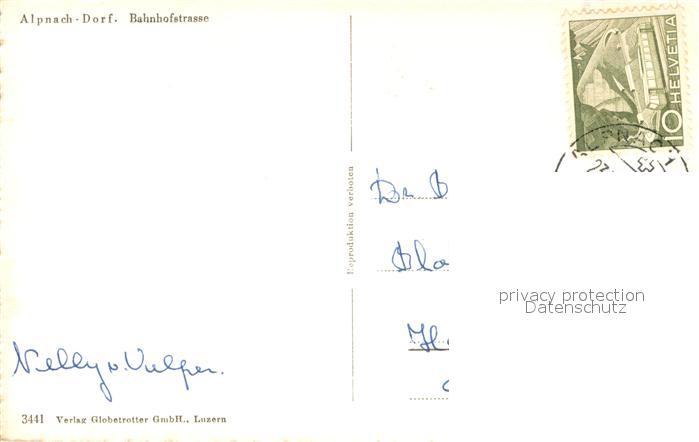 Alpnach-Dorf. Bahnhofstrasse
HELVETIA
10
ALPNACH
Reproduktion verboten
Dr B
Blo
privacy protection
Datenschutz
Nelly v. Vulper.
3441 Verlag Globetrotter GmbH., Luzern